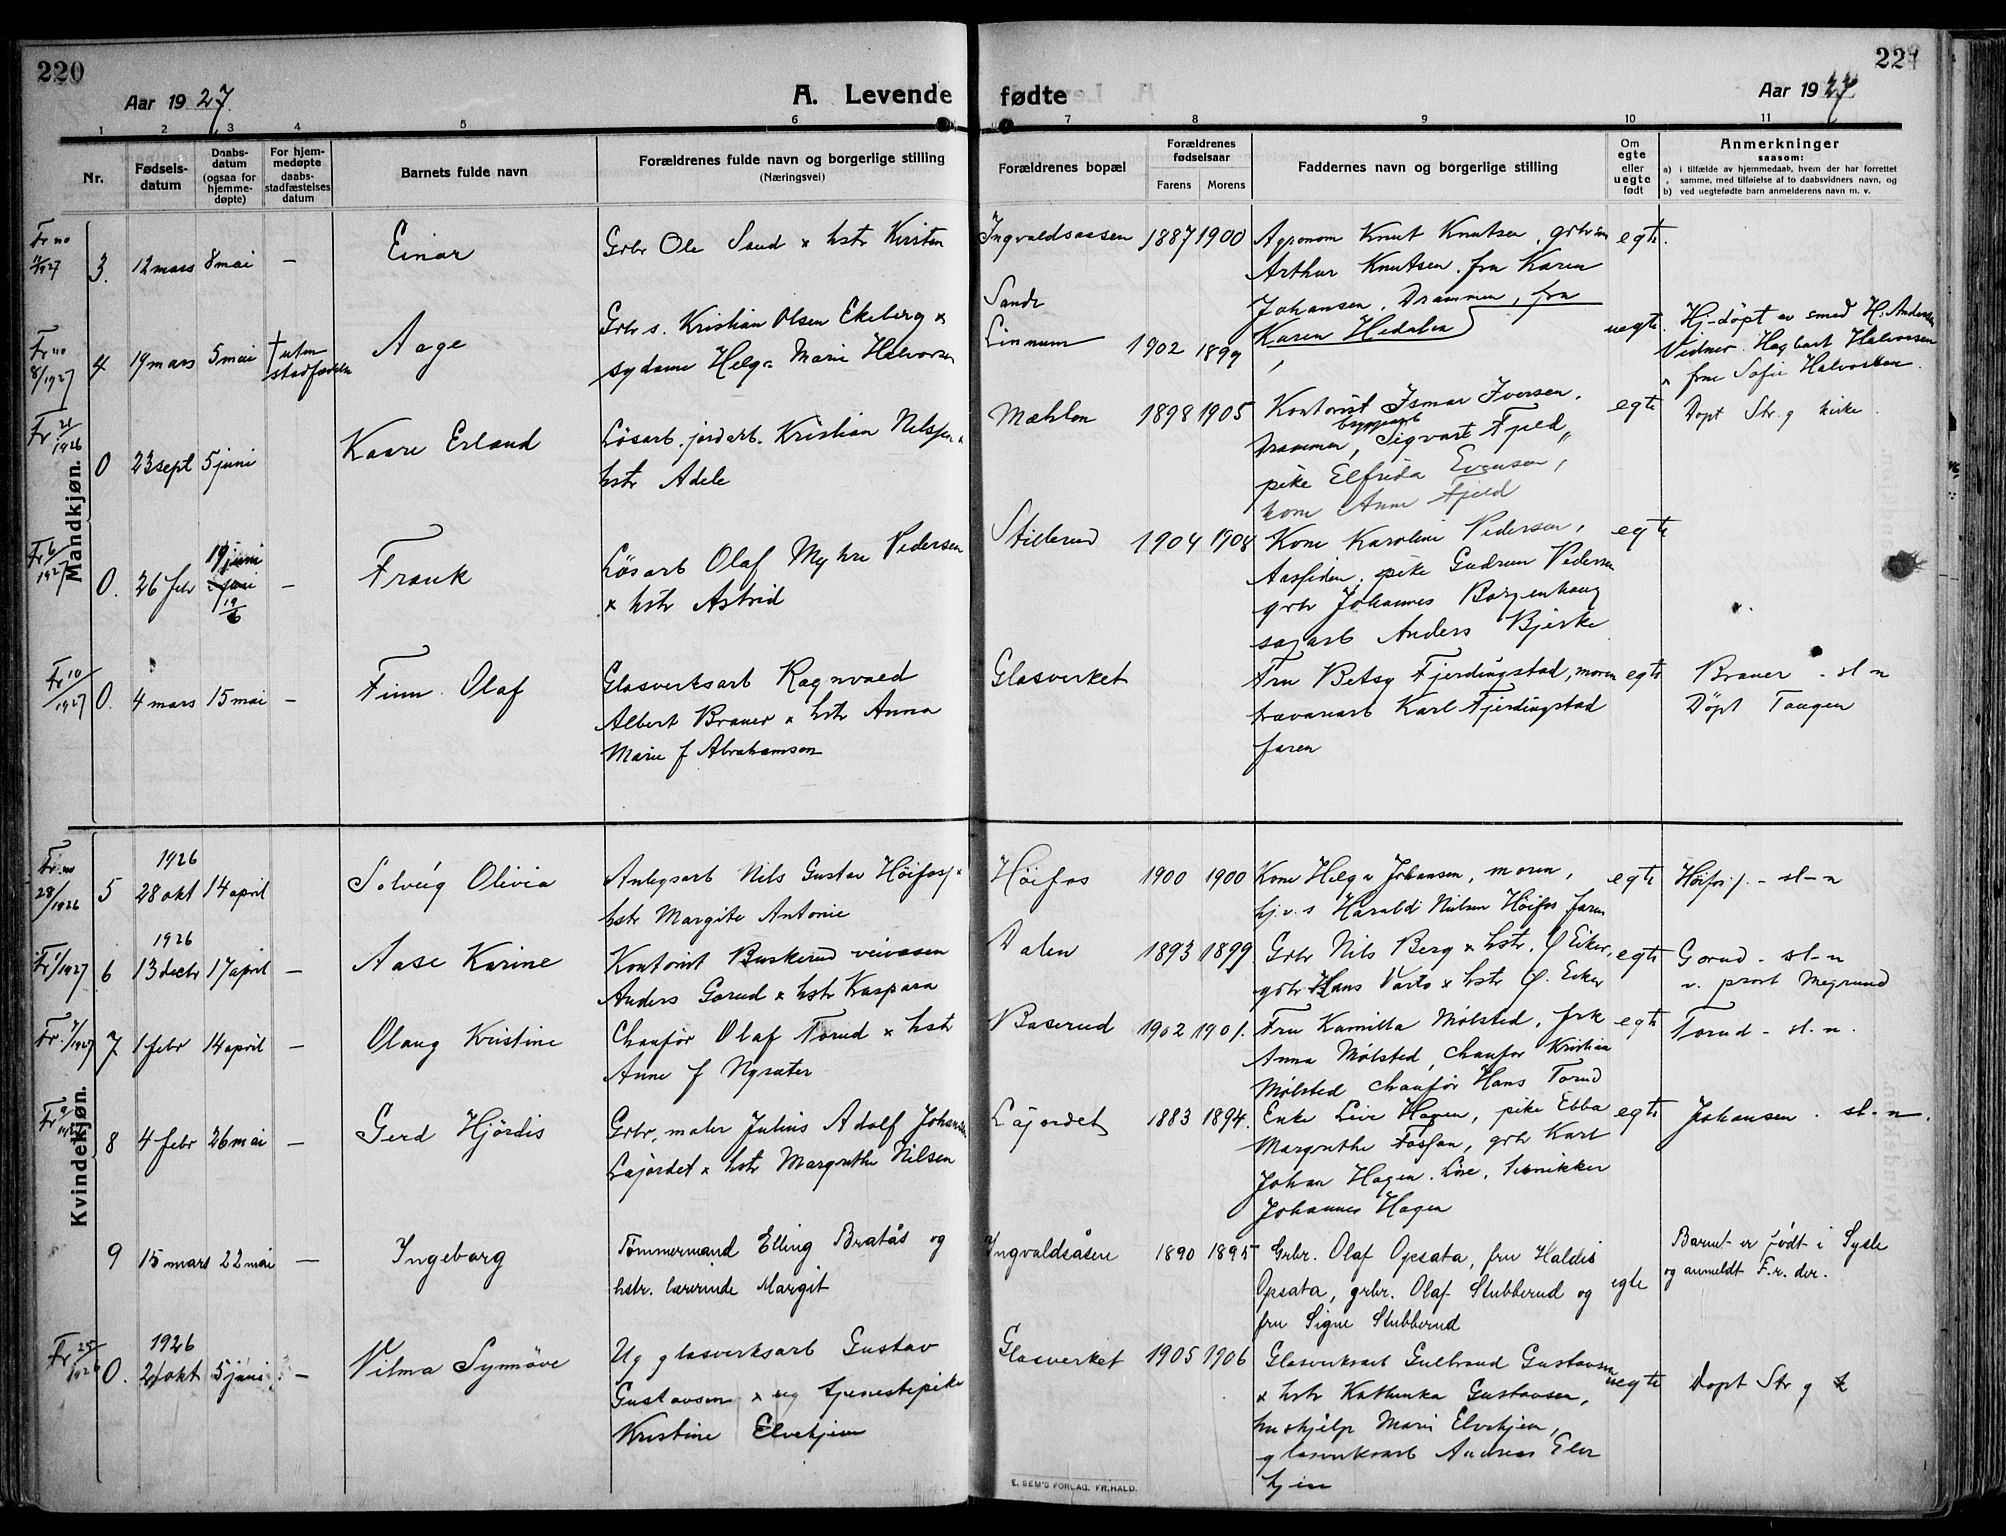 220
Aar 1927.
A. Levende
1 2 3 4 5 6
Nr.
Fødsels-
datum
Daabs-
datum
(ogsaa for
hjemme-
døpte)
For hjem-
medøpte
daabs-
stadfæstelses
datum
Barnets fulde navn
Forældrenes fulde navn og borgerlige stilling
(Næringsvei)
Mandkjøn.
Fr no
11/1927
3. 12 mars 8 mai –
Einar
Grbr Ole Sand x hstr Kirsten
Fr no
8/1927
4 19 mars 5 mai † uten
stadfæstelse
Aage
Grbr s. Kristian Olsen Ekeberg x
sydame Helga Marie Halvorsen
Fr 21
1926
0 23 sept 5 juni
Kaare Erland
Løsarb. jordarb. Kristian Nilsen x
hstr Adele
Fr 6/
1927
0. 26 febr
19 juni
19
6
–
Frank
Løsarb Olaf Myhre Pedersen
x hstr Astrid
Fr 10/
1927
0. 4 mars 15 mai –
Finn Olaf
Glasverksarb Ragnvald
Albert Brauer x hstr Anna
Marie f Abrahamsen
Kvindekjøn.
Fr no
28/1926
1926
5 28 okt 14 april
Solveig Olivia
Anlegsarb Nils Gustav Høifos x
hstr Margite Antonie
1926
Fr 1/1927
6 13 decbr 17 april –
Aase Karine
Kontorist Buskerud veivæsen
Anders Gorud x hstr Kaspara
Fr. 7/1927
7 1 febr 14 april –
Olaug Kristine
Chaufør Olaf Torud x hstr
Anne f Nysæter
Fr 9/
1927
8 4 febr 26 mai –
Gerd Hjørdis
Grbr, maler Julius Adolf Johansen
Lajordet x hstr Margrethe Nilsen
9 15 mars 22 mai –
Ingeborg
Tømmermand Elling Bratås og
hstr. lærerinde Margit
Fr 25/
1926
0. 21 okt 5 juni –
Vilma Synnøve
Ug glasverksarb Gustav
Gustavsen x ug tjenestepike
Kristine Elvehjem
221
fødte
Aar 1927
7 8 9 10 11
Forældrenes bopæl
Forældrenes
fødselsaar
Farens Morens
Faddernes navn og borgerlige stilling
Om
egte
eller
uegte
født
Anmerkninger
saasom:
a) i tilfælde av hjemmedaab, hvem der har forrettet
samme, med tilføielse af to daabsvidners navn, og
b) ved uegtefødte barn anmelderens navn m. v.
Ingvaldsaasen 1887 1900
Agronom Knut Knutsen, grbr
Arthur Knutsen, fru Karen
Johansen, Drammen, fru
Karen Hedalen
egte.
Sande
Linnum 1902 1899
uegte.
Hj-døpt av smed H. Andersen
Vidner. Hagbart Halvorsen
x frue Sofie Halvorsen.
Mæhlen 1898 1905
Kontorist Ismar Iversen,
Drammen, Sigvart Fjeld,
pike Elfrida Evensen,
kone Anne Fjeld
egte
Døpt Str.g kirke.
Stillerud 1904 1908
Kone Karoline Pedersen,
Aassiden, pike Gudrun Pedersen
grbr Johannes Borgenhaug
sagarb Anders Bjerke
egte
Glasverket
Fru Betsy Fjerdingstad, moren
trævarearb Karl Fjerdingstad
faren
egte
Brauer – sl-n
Døpt Tangen
Høifos 1900 1900
Kone Helga Johansen, moren,
hj.v.s Harald Nilsen Høifos, faren
egte
Høifos – sl-n
Dalen 1893 1899
Grbr Nils Berg x hstr, Ø Eiker,
grbr Hans Varlo x hstr Ø. Eiker
egte
Gorud – sl-n
v. prost Megrund
Baserud 1902 1901.
Fru Kamilla Mølsted, frk
Anna Mølsted, chaufør Kristian
Mølsted chaufør Hans Torud
egte
Torud – sl-n.
Lajordet 1883 1894.
Enke Live Hagen, pike Ebba
Margrethe Fosfan, grbr Karl
Johan Hagen. Lore, snikker
Johannes Hagen
egte
Johansen – sl-n.
Ingvaldsåsen 1890 1895
Grbr. Olaf Opsata, fru Haldis
Opsata, grbr. Olaf Stubberud og
fru Signe Stubberud
egte
Barnet er født i Sysle
og anmeldt F.r. der.
Glasverket 1905 1906
Glasverksarb Gulbrand Gustavsen
x hstr Kathinka Gustavsen,
hushjelp Marie Elvehjem,
glasverksarb Andreas Elve
hjem
uegte
Døpt Str g k
E. SEM'S FORLAG, FR.HALD.